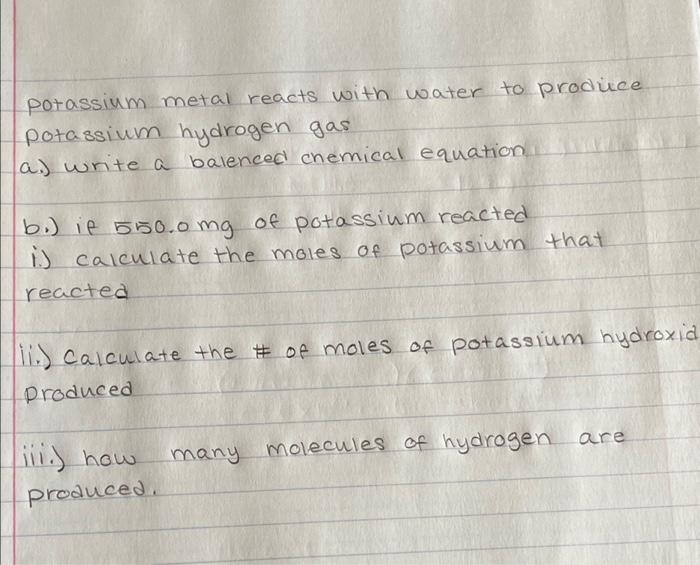 potassium metal reacts with water to produce
potassium hydrogen gas
a.) write a balenced chemical equation
b.) if 550.0 mg of potassium reacted
i.) calculate the moles of potassium that
reacted
ii.) calculate the # of moles of potassium hydroxid
produced
iii.) how many molecules of hydrogen are
produced.